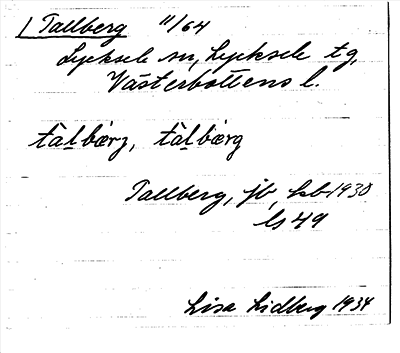 Tallberg 11/64
Lycksele sn, Lycksele tg,
Västerbottens l.
tàl̲bærj, tàl̲bærg
Tallberg, jb, kb 1930
ls 49
Lisa Lidberg 1934